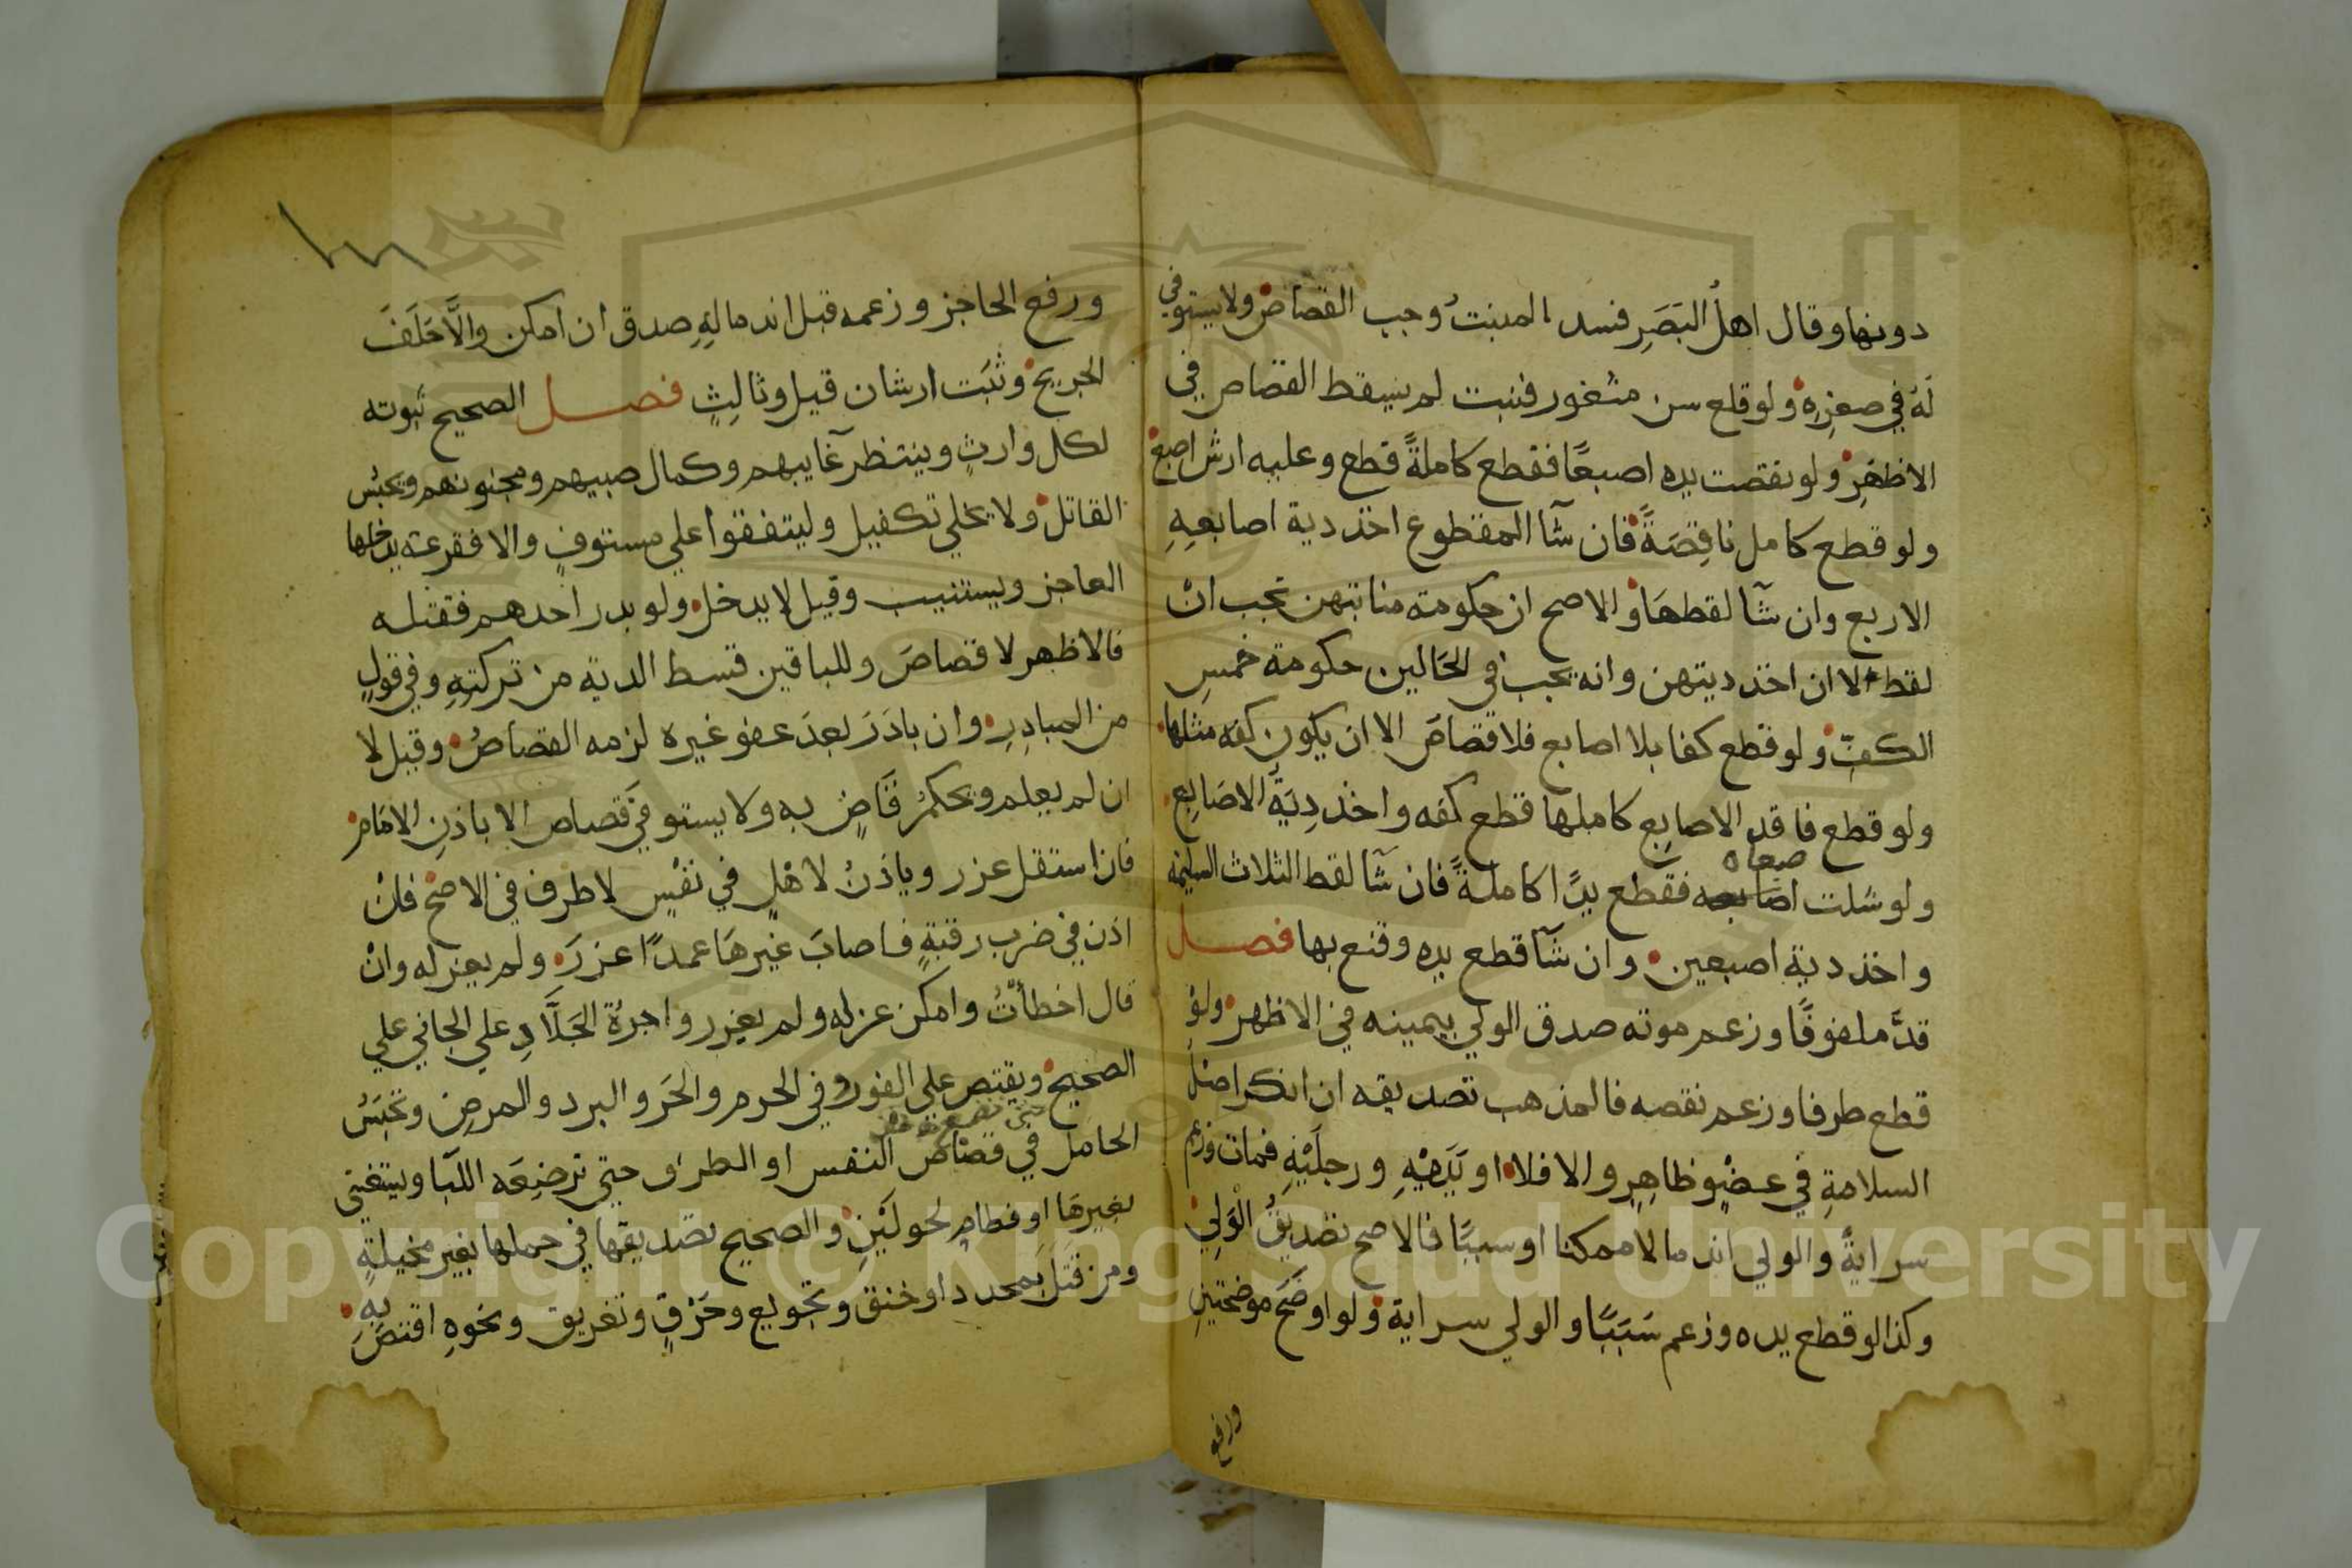 دونها وقال اهلُ البَصَرِ فسد المنبتُ وجب القصاص ولا يستوفي
لَهُ في صغرِه ولو قلع سن مثغور فنبت لم يسقط القصاص في
الاظهرِ ولو نقصت يده اصبعًا فقطع كاملةً قطع وعليه ارش اصبع
ولو قطع كامل ناقِصَةً فان شآ المقطوع اخذ دية اصابعِهِ
الاربع وان شآ لقطهَا والاصح ان حكومة منابتهن تجب انْ
لقط لا ان اخذ ديتهن وانه يجب في الحَالين حكومة خمسِ
الكفِّ ولو قطع كفا بلا اصابع فلا قصاصَ الا ان يكون كفه مثلها
ولو قطع فاقد الاصابِع كاملها قطع كفه واخذ دِيَةَ الاصَابِع
ولو شلت اصبعاه فقطع يدًا كاملةً فان شآ لقط الثلاث السليمه
واخذ دية اصبعين وان شآ قطع يده وقنع بها فصل
قدَّ ملفوفًا وزعم موته صدق الولي بيمينه في الاظهر ولوْ
قطع طرفا وزعم نقصه فالمذهب تصديقه ان انكر اصل
السلامةِ في عضْوٍ ظاهِرٍ والا فلا او يَدَيْهِ ورجلَيْهِ فمات وزعم
سرايةً والولي اندمالا ممكنا او سببًا فالاصح تصديقُ الْوَلِي
وكذا لو قطع يده وزعم سَبَبًا والولي سراية ولو اوضَحَ موضحتينِ
ورفع
ورفع الحاجز وزعمه قبل اندمالِهِ صدق ان امكن والَّا حَلَفَ
الجريح وثبَت ارشان قيل وثالِثٍ فصل الصحيح ثبوته
لكل وارثٍ وينتظر غايبهم وكمال صبيهم ومجنونهم ويحبس
القاتل ولا يخلي تكفيل وليتفقوا علي مستوفٍ والا فقرعة يدخلها
العاجز ويستنيب وقيل لا يدخل ولو بدر احدهم فقتله
فالاظهر لا قصاصَ وللباقين قسط الدية من تركتِهِ وفي قولٍ
من المبادِرِ وان بادَرَ بعدَ عفو غيره لزمه القصاصُ وقيل لا
ان لم يعلم ويحكمُ قَاضٍ به ولا يستوفَي قصاص الا باذنِ الامَام
فان استقل عزر وياذَنُ لاهْلٍ في نفْسٍ لا طرف في الاصح فانْ
اذن في ضرب رقبةٍ فاصابَ غيرهَا عمدًا عزرَ ولم يعزله وانْ
قال اخطأتُ وامكن عزله ولم يعزر واجرةُ الجَلَّادِ علي الجاني علي
الصحيح ويقتص علي الفور وفي الحرم والحَر والبرد والمرضِ وتحبَسُ
الحامل في قصاص النفس او الطرف حتي ترضِعَه اللبَا ويستغني
بغيرهَا او فطامٍ لحولَيْنِ والصحيح تصديقها في حملها بغير مخيلةٍ
ومن قتل بمحدد او خنق وتجويع وحَرْقٍ وتغريق ونحوِهِ اقتصَّ بِهِ
Copyright © King Saud University